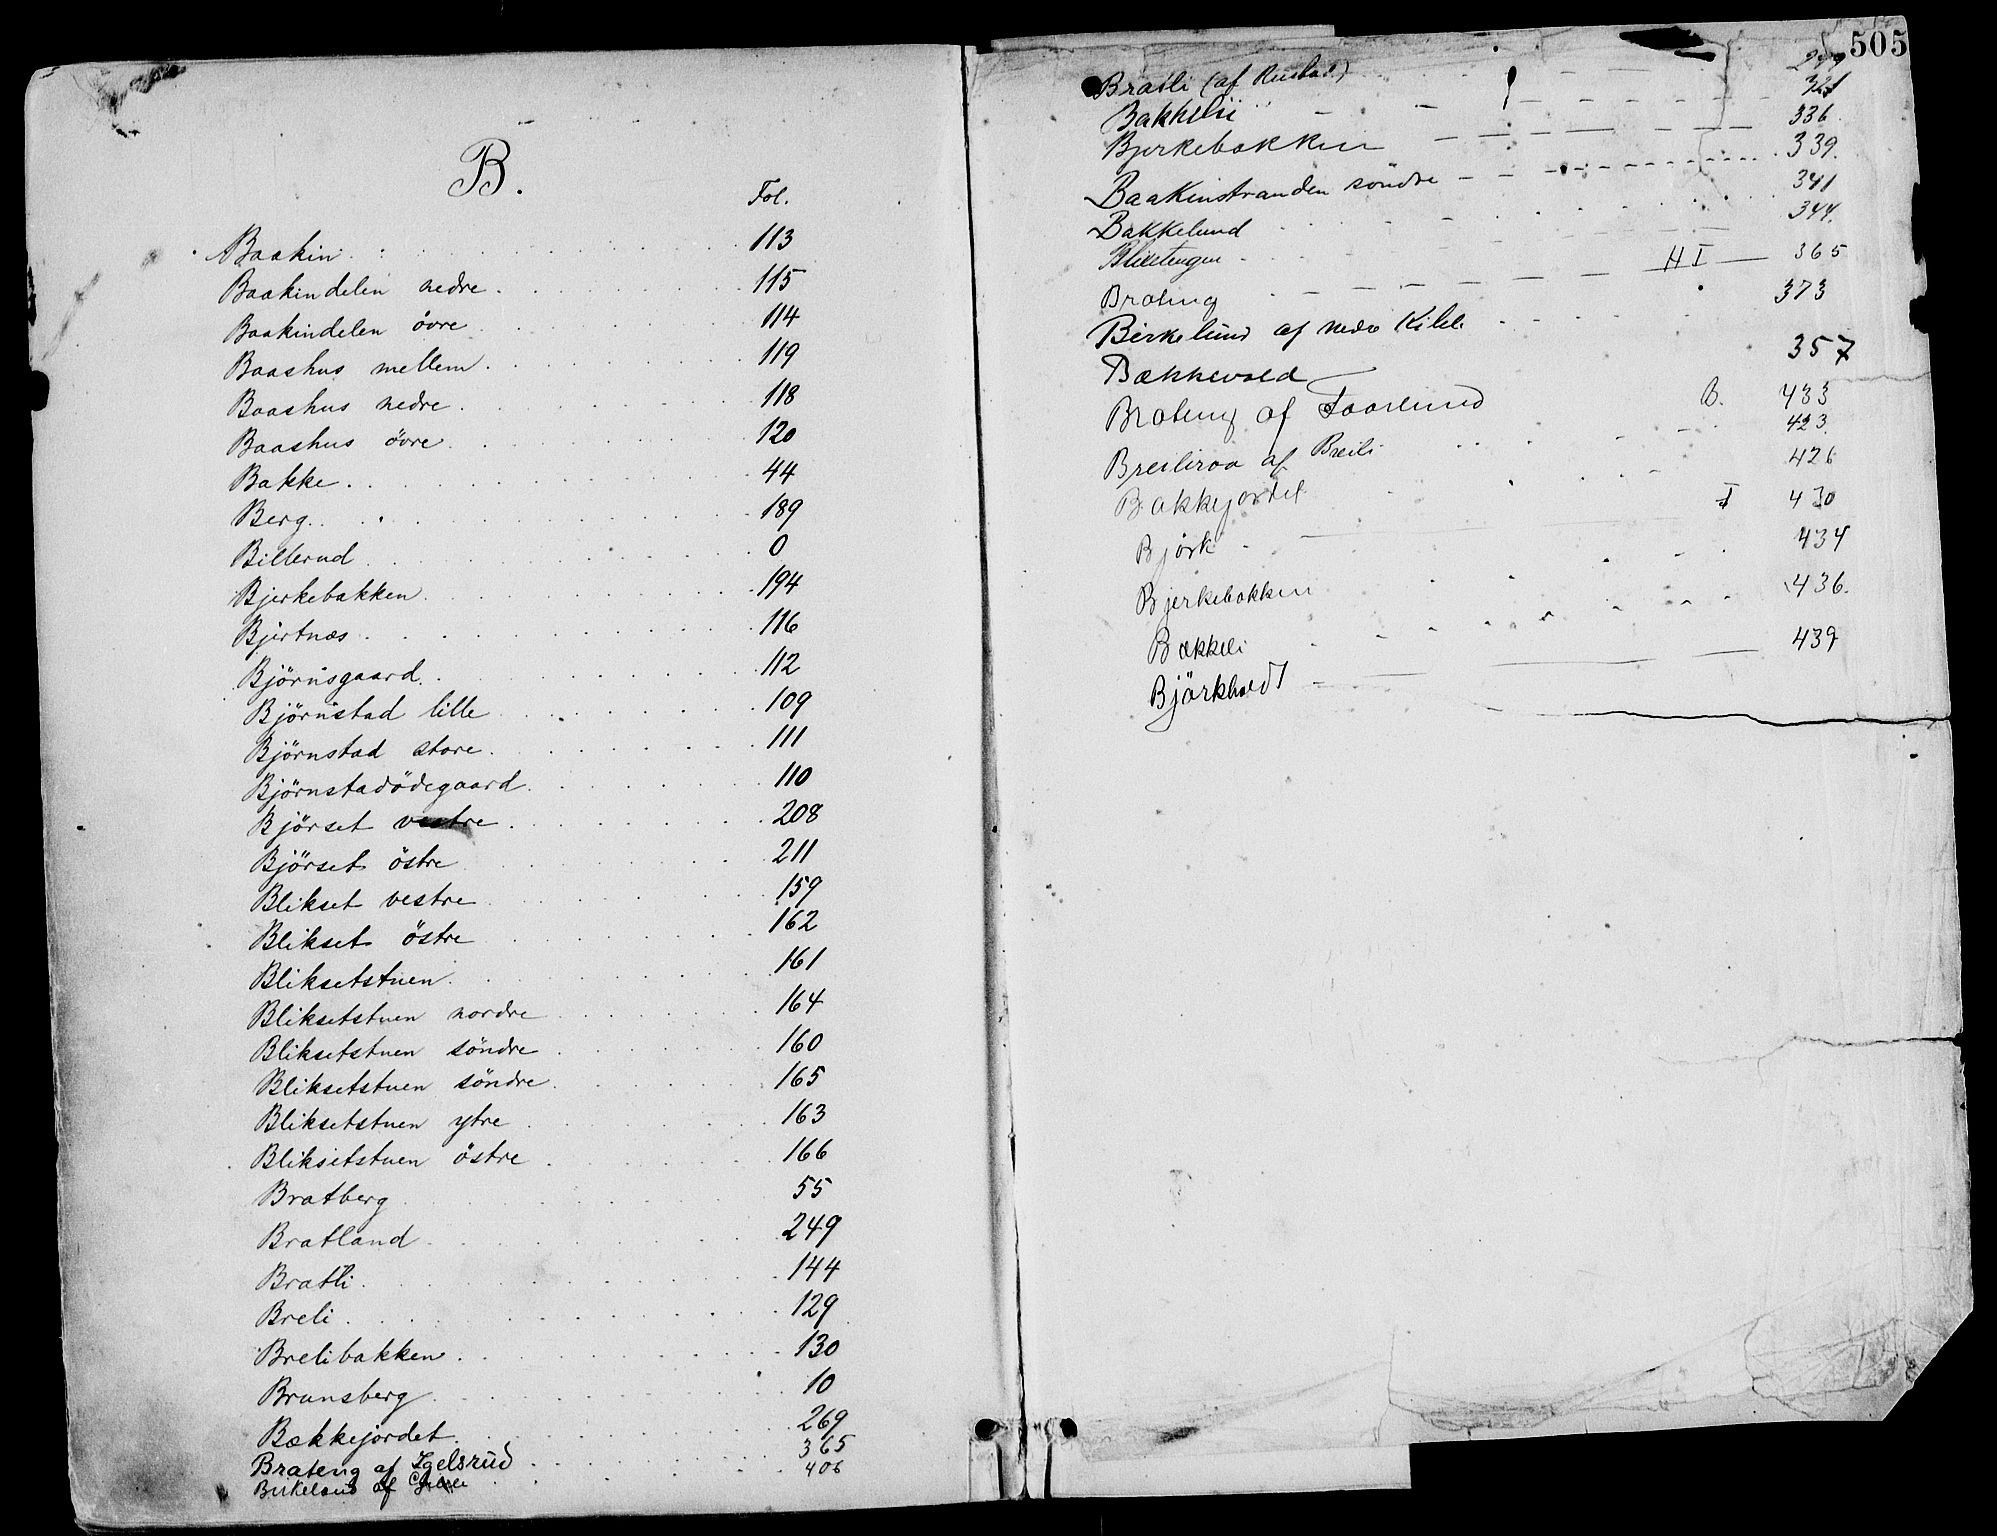 B.
Fol.
Baakin. 113
Baakindelen nedre. 115
Baakindelen övre 114
Baashus mellem. 119
Baashus nedre. 118
Baashus övre. 120
Bakke. 44
Berg. 189
Billerud 0
Bjerkebakken. 194
Bjertnæs. 116
Björnsgaard. 112
Björnstad lille 109
Björnstad store. 111
Björnstadödegaard. 110
Björset vestre. 208
Björset östre 211
Blikset vestre 159
Blikset östre 162
Bliksetstuen. 161
Bliksetstuen nordre 164
Bliksetstuen söndre 160
Bliksetstuen söndre. 165
Bliksetstuen ytre 163
Bliksetstuen östre 166
Bratberg 55
Bratland 249
Bratli. 144
Breli. 129
Brelibakken. 130
Brunsberg 10
Bækkejordet 269
Brateng af Igelsrud 365
Birkelund af 406
505
Bratli (af Rustad) 299
Bakkelie 321
Bjerkebakken 336.
Baakinstranden söndre 339.
Bakkelund 341
344.
Brateng H I 365
Birkelund af nedre Kihle 373
Bækkevold 357
Brateng af Taarlund B. 433
Breiliroa af Breili 423.
Bakkejordet 426
Björk I 430
Bjerkebakken 434
Bækkeli 436.
Björkholdt 439